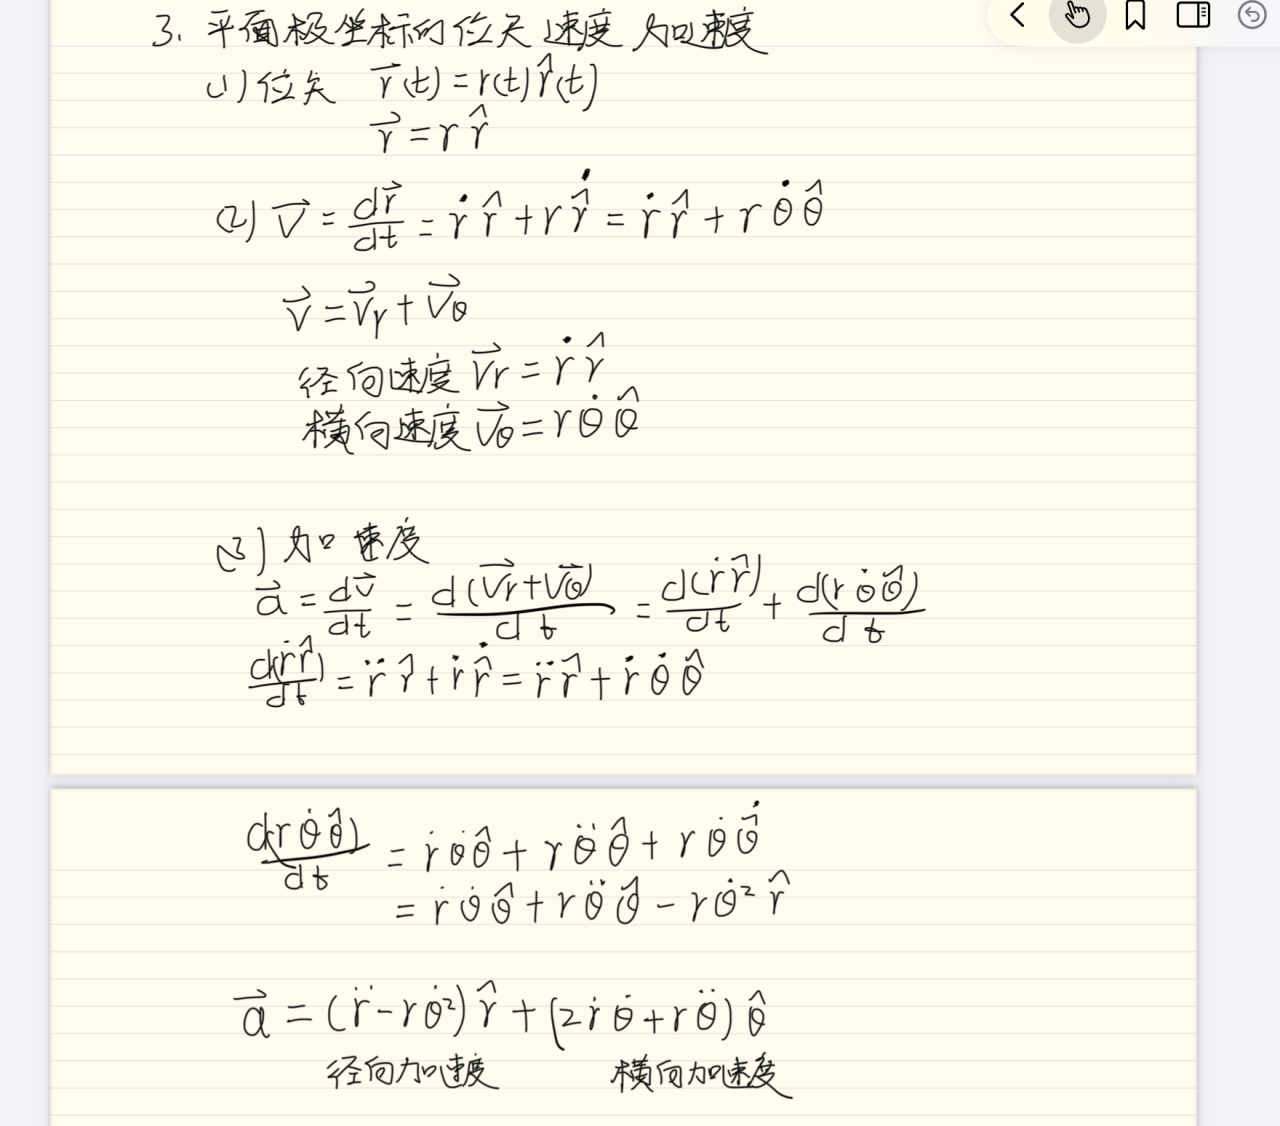 3. 平面极坐标的位矢 速度 加速度
(1) 位矢 r⃗(t) = r(t)r̂(t)
r⃗ = r r̂
(2) V⃗ = dr⃗/dt = ṙ r̂ + r r̂̇ = ṙ r̂ + r θ̇ θ̂
V⃗ = V⃗r + V⃗θ
径向速度 V⃗r = ṙ r̂
横向速度 V⃗θ = r θ̇ θ̂
(3) 加速度
a⃗ = dv⃗/dt = d(V⃗r + V⃗θ)/dt = d(ṙ r̂)/dt + d(r θ̇ θ̂)/dt
d(ṙ r̂)/dt = r̈ r̂ + ṙ r̂̇ = r̈ r̂ + ṙ θ̇ θ̂
d(r θ̇ θ̂)/dt = ṙ θ̇ θ̂ + r θ̈ θ̂ + r θ̇ θ̂̇
= ṙ θ̇ θ̂ + r θ̈ θ̂ - r θ̇² r̂
a⃗ = (r̈ - r θ̇²) r̂ + (2 ṙ θ̇ + r θ̈) θ̂
径向加速度 横向加速度